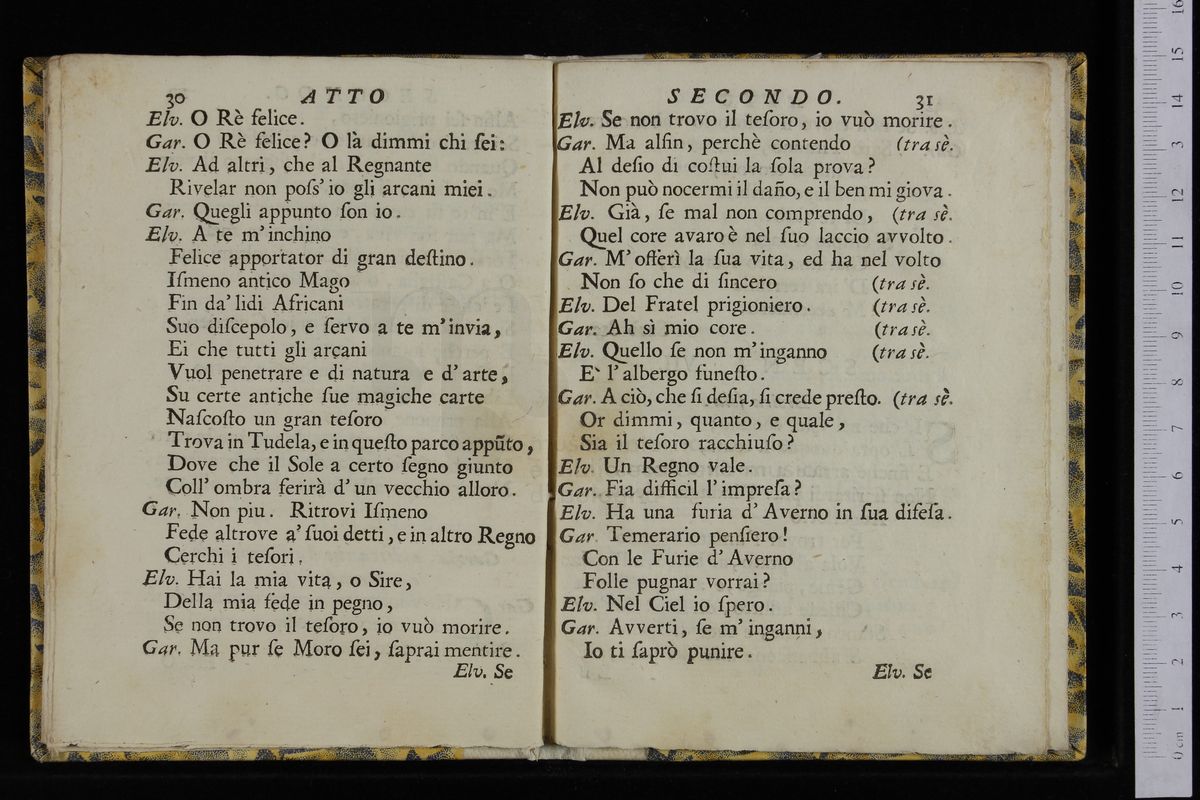 30 ATTO
Elv. O Rè felice.
Gar. O Rè felice? O là dimmi chi ſei:
Elv. Ad altri, che al Regnante
Rivelar non poſs' io gli arcani miei.
Gar. Quegli appunto ſon io.
Elv. A te m' inchino
Felice apportator di gran deſtino.
Iſmeno antico Mago
Fin da' lidi Africani
Suo diſcepolo, e ſervo a te m' invia,
Ei che tutti gli arcani
Vuol penetrare e di natura e d' arte,
Su certe antiche ſue magiche carte
Naſcoſto un gran teſoro
Trova in Tudela, e in queſto parco appũto,
Dove che il Sole a certo ſegno giunto
Coll' ombra ferirà d' un vecchio alloro.
Gar. Non piu. Ritrovi Iſmeno
Fede altrove a' ſuoi detti, e in altro Regno
Cerchi i teſori.
Elv. Hai la mia vita, o Sire,
Della mia fede in pegno,
Se non trovo il teſoro, io vuò morire.
Gar. Ma pur ſe Moro ſei, ſaprai mentire.
Elv. Se
SECONDO. 31
Elv. Se non trovo il teſoro, io vuò morire.
Gar. Ma alfin, perchè contendo (tra sè.
Al deſio di coſtui la ſola prova?
Non può nocermi il dan̄o, e il ben mi giova.
Elv. Già, ſe mal non comprendo, (tra sè.
Quel core avaro è nel ſuo laccio avvolto.
Gar. M' offerì la ſua vita, ed ha nel volto
Non ſo che di ſincero (tra sè.
Elv. Del Fratel prigioniero. (tra sè.
Gar. Ah sì mio core. (tra sè.
Elv. Quello ſe non m' inganno (tra sè.
E` l' albergo funeſto.
Gar. A ciò, che ſi deſia, ſi crede preſto. (tra sè.
Or dimmi, quanto, e quale,
Sia il teſoro racchiuſo?
Elv. Un Regno vale.
Gar. Fia difficil l' impreſa?
Elv. Ha una furia d' Averno in ſua difeſa.
Gar. Temerario penſiero!
Con le Furie d' Averno
Folle pugnar vorrai?
Elv. Nel Ciel io ſpero.
Gar. Avverti, ſe m' inganni,
Io ti ſaprò punire.
Elv. Se
0 cm 1 2 3 4 5 6 7 8 9 10 11 12 13 14 15 16